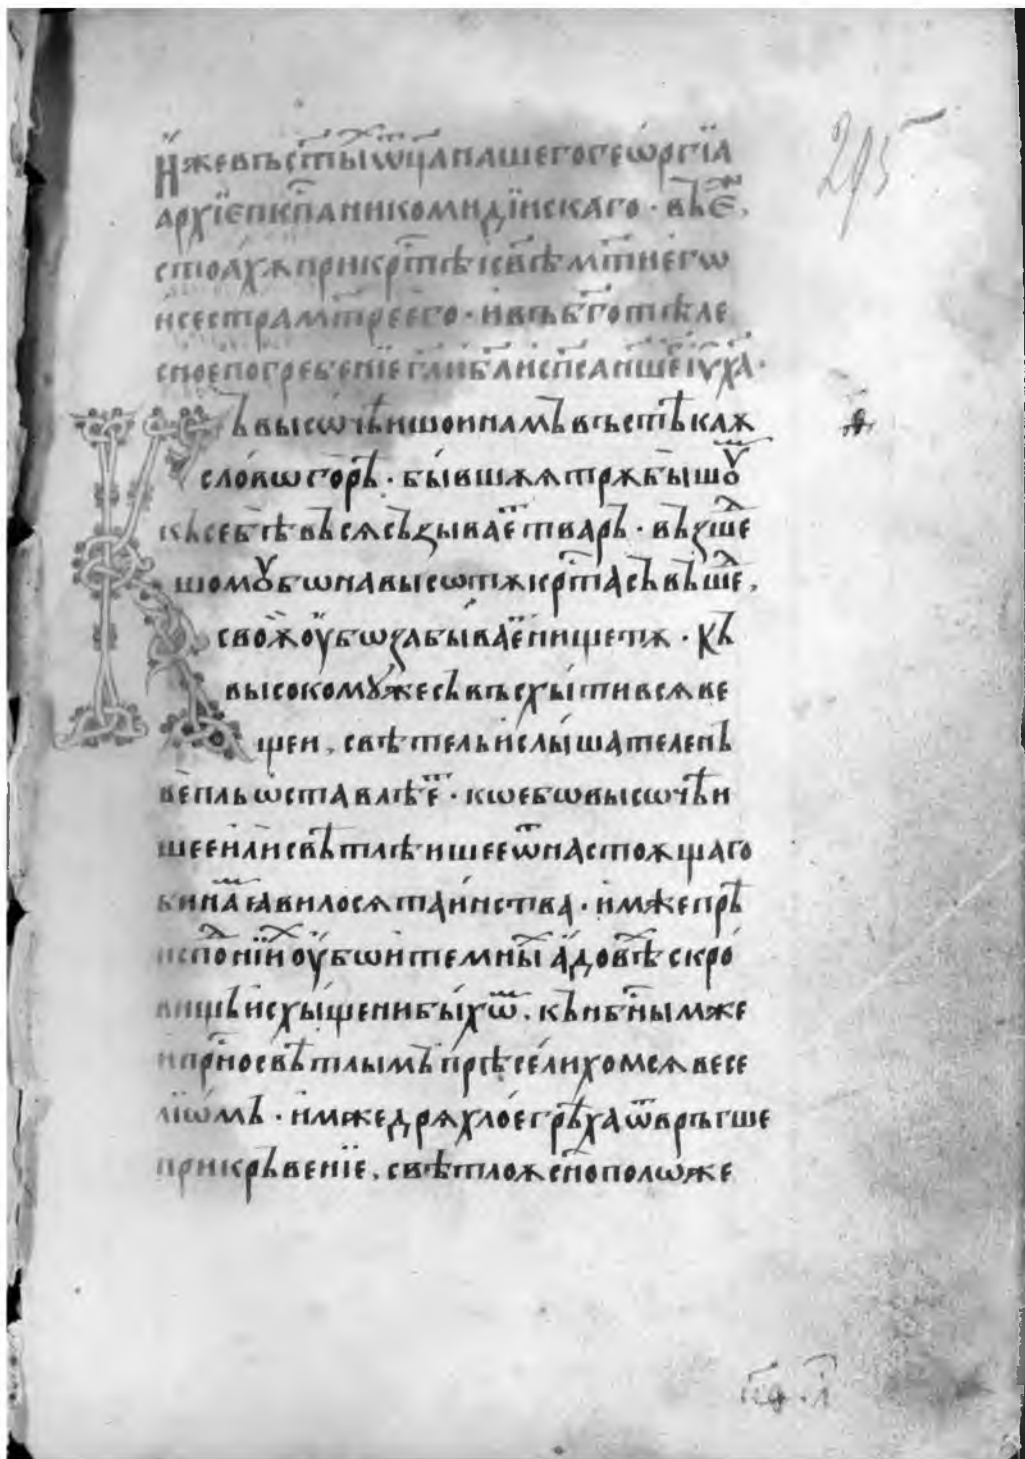 295
Иже въ ст҃ы ѿц҃а нашего геѡ́ргїа
архїепⷭ҇кпа никомидїискаго · въ е҆,
стоахѫ при крⷭ҇тѣ і҆сⷭ҇вѣ м҃ти е҆гѡ
и сестра м҃тре е҆го · и въ б҃готѣле
сное погребенїе г҃а
Къ высѡчѣишои намъ въстѣкаѫ
слѡвѡ горѣ · бывшѫѧ трѫбы шѹ
къ себѣ въсѧ съзывае҆ тваръ · въꙁше
шомꙋ бѡ на высотѫ крⷭ҇та съвъше,
своѫ оу҆бѡ ꙁабывае҆ нищетѫ · къ
высокомꙋ же съвъсхытивсѧ ве
щеи, свѣтелъ и слышателе нъ
не плъ ѡставлѣе҆ · кѡе бѡ высѡчѣи
шее или свѣтлѣишее ѿ настоѫщаго
и на ꙗвилосѧ таинства · имже прѣ
исподнїи оу҆бѡ и темны а҆довѣ скро
вищь исхыщени быхѡ, къ нбⷭ҇нымже
и прⷭ҇носвѣтлымъ прѣселихомсѧ весе
лїѡмъ · имже дрѧхлое грѣха ѿвръгше
прикръвенїе, свѣтлоѫ